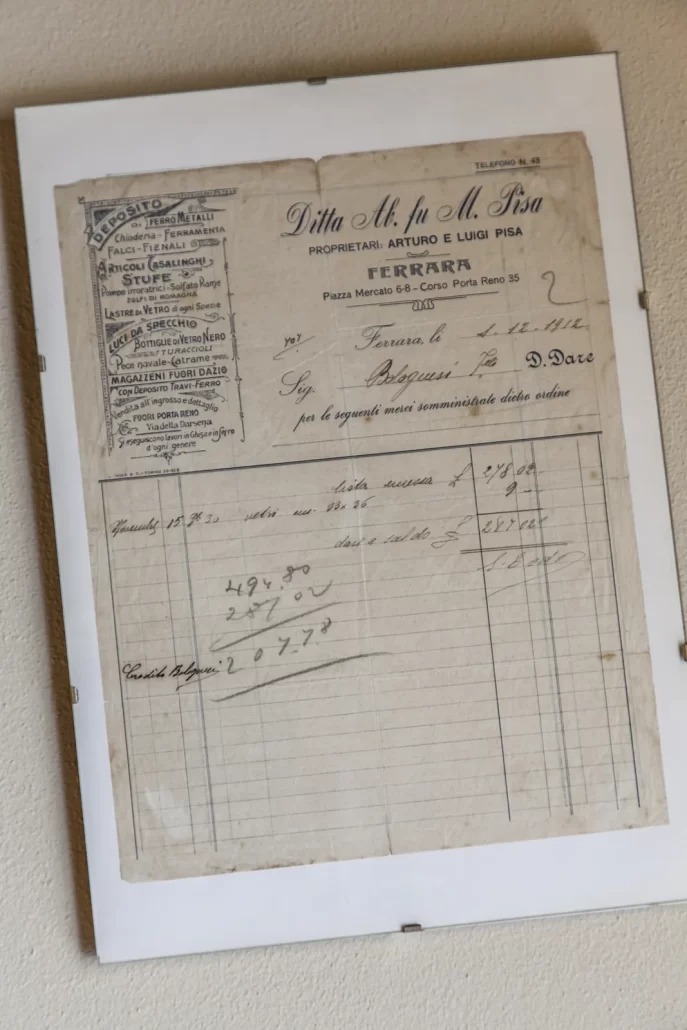 TELEFONO N. 43
DEPOSITO
DI FERRO METALLI
Chioderia - FERRAMENTA
FALCI - FIENALI
ARTICOLI CASALINGHI
STUFE
Pompe irroratrici - Solfato Rame
ZOLFI DI ROMAGNA
LASTRE DI VETRO d'ogni Specie
LUCI DA SPECCHIO
BOTTIGLIE DI VETRO NERO
TURACCIOLI
Pece navale - Catrame
MAGAZZENI FUORI DAZIO
CON DEPOSITO TRAVI-FERRO
Vendita all'ingrosso e dettaglio
FUORI PORTA RENO
Via della Darsena
Si eseguiscono lavori in Ghisa e in ferro
d'ogni genere
Ditta Ab. fu M. Pisa
PROPRIETARI: ARTURO E LUIGI PISA
FERRARA
Piazza Mercato 6-8 - Corso Porta Reno 35
2
Ferrara, li 1-12-1912
Sig. Bolognesi D. Dare
per le seguenti merci somministrate dietro ordine
lista 278,02
Novembre 15 vetri 9 -
dare a saldo 287,02
494.80
287 02
207.78
Credito Bolognesi